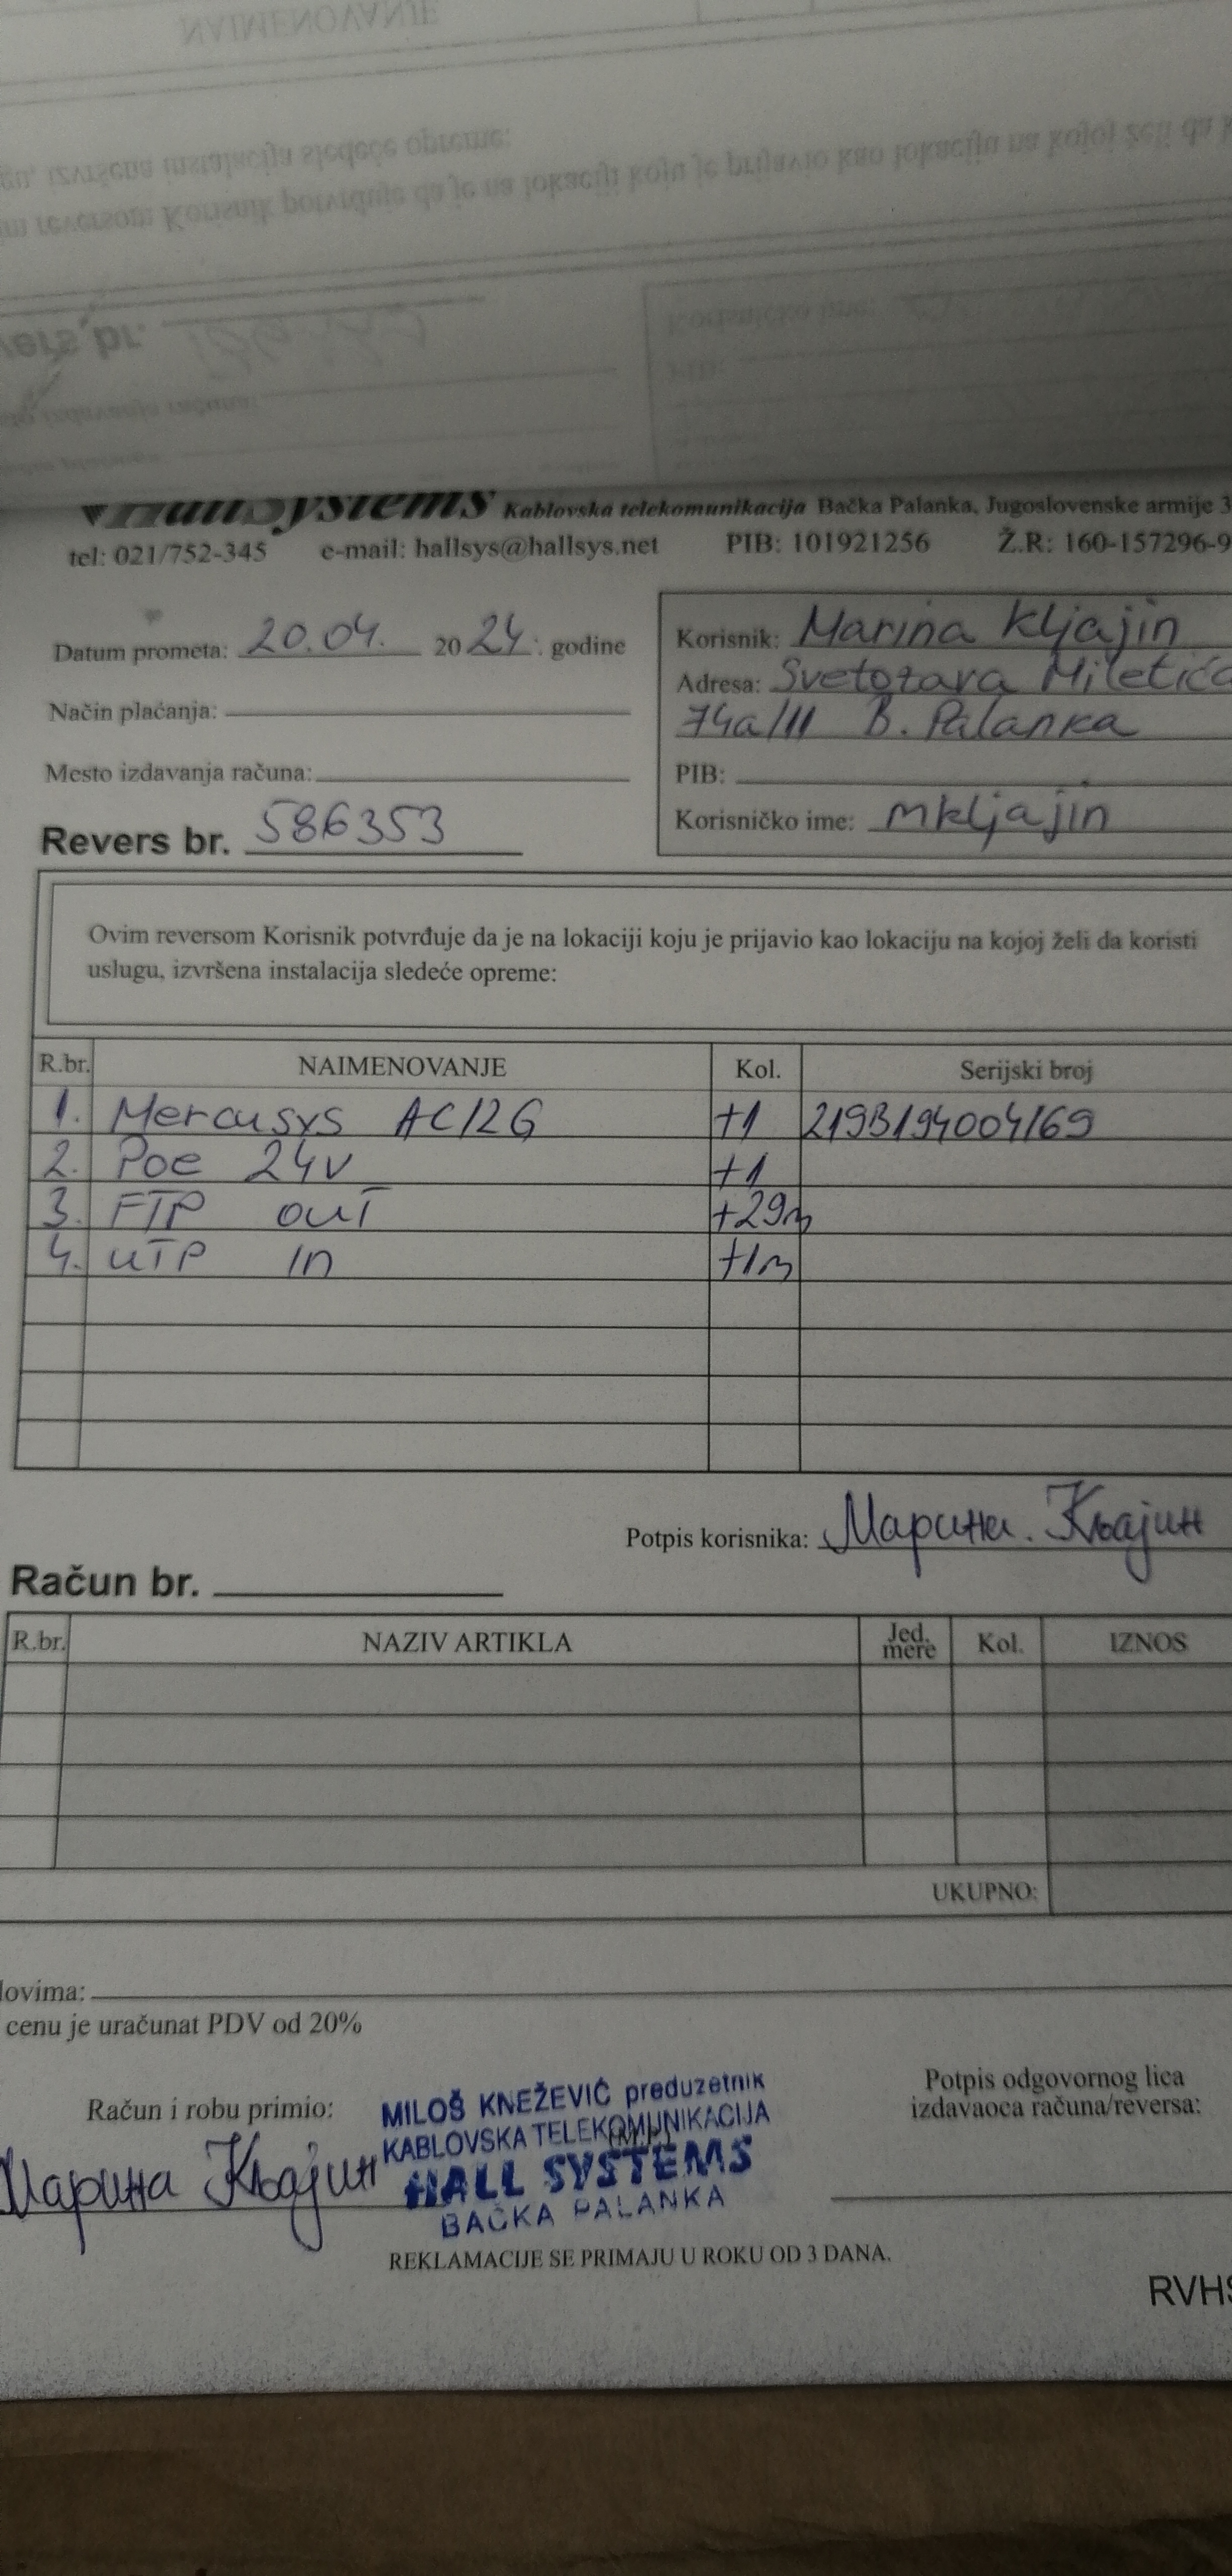 NAIMENOVANJE
izvršena instalacija sledeće opreme:
reversom Korisnik potvrđuje da je na lokaciji koju je prijavio kao lokaciju na kojoj želi da
br.
Korisničko ime:
PIB:
HallSystems Kablovska telekomunikacija Bačka Palanka, Jugoslovenske armije 3
tel: 021/752-345 e-mail: hallsys@hallsys.net PIB: 101921256 Ž.R: 160-157296-9
Datum prometa: 20.04. 2024. godine
Način plaćanja:
Mesto izdavanja računa:
Revers br. 586353
Korisnik: Marina Kljajin
Adresa: Svetozara Miletića
74a/11 B. Palanka
PIB:
Korisničko ime: mkljajin
Ovim reversom Korisnik potvrđuje da je na lokaciji koju je prijavio kao lokaciju na kojoj želi da koristi
uslugu, izvršena instalacija sledeće opreme:
R.br. NAIMENOVANJE Kol. Serijski broj
1. Mercusys AC12G +1 2193194004169
2. Poe 24V +1
3. FTP out +29m
4. UTP in +1m
Potpis korisnika: Марина Кљајин
Račun br.
R.br. NAZIV ARTIKLA Jed. mere Kol. IZNOS
UKUPNO:
lovima:
cenu je uračunat PDV od 20%
Račun i robu primio:
Марина Кљајин
MILOŠ KNEŽEVIĆ preduzetnik
KABLOVSKA TELEKOMUNIKACIJA
(M.P.)
HALL SYSTEMS
BAČKA PALANKA
Potpis odgovornog lica
izdavaoca računa/reversa:
REKLAMACIJE SE PRIMAJU U ROKU OD 3 DANA.
RVHS